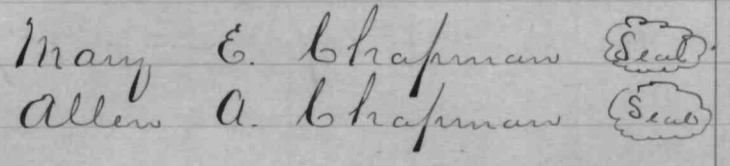 Mary E. Chapman Seal
Allen A. Chapman Seal